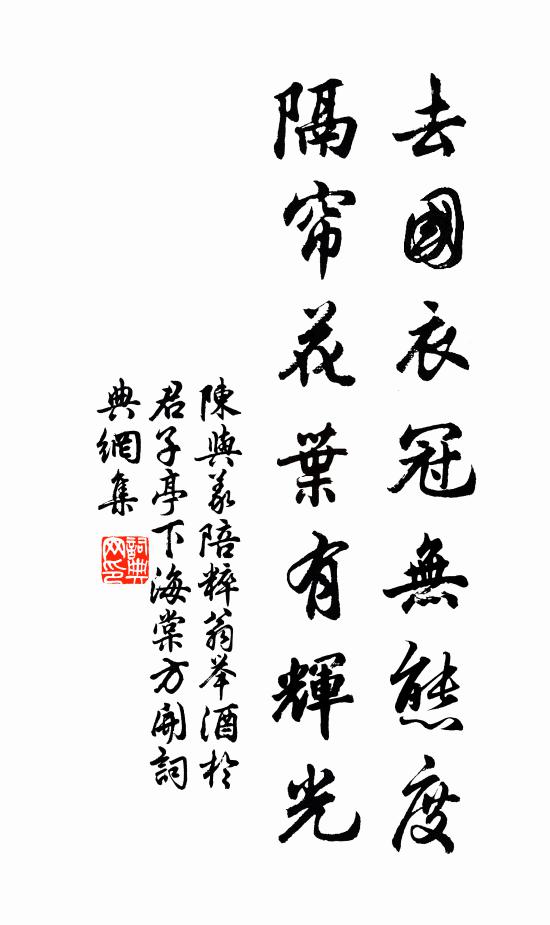 去國衣冠無態度
隔帘花葉有輝光
陳與義陪粹翁举酒於
君子亭下海棠方開詞
典網集
詞典網印